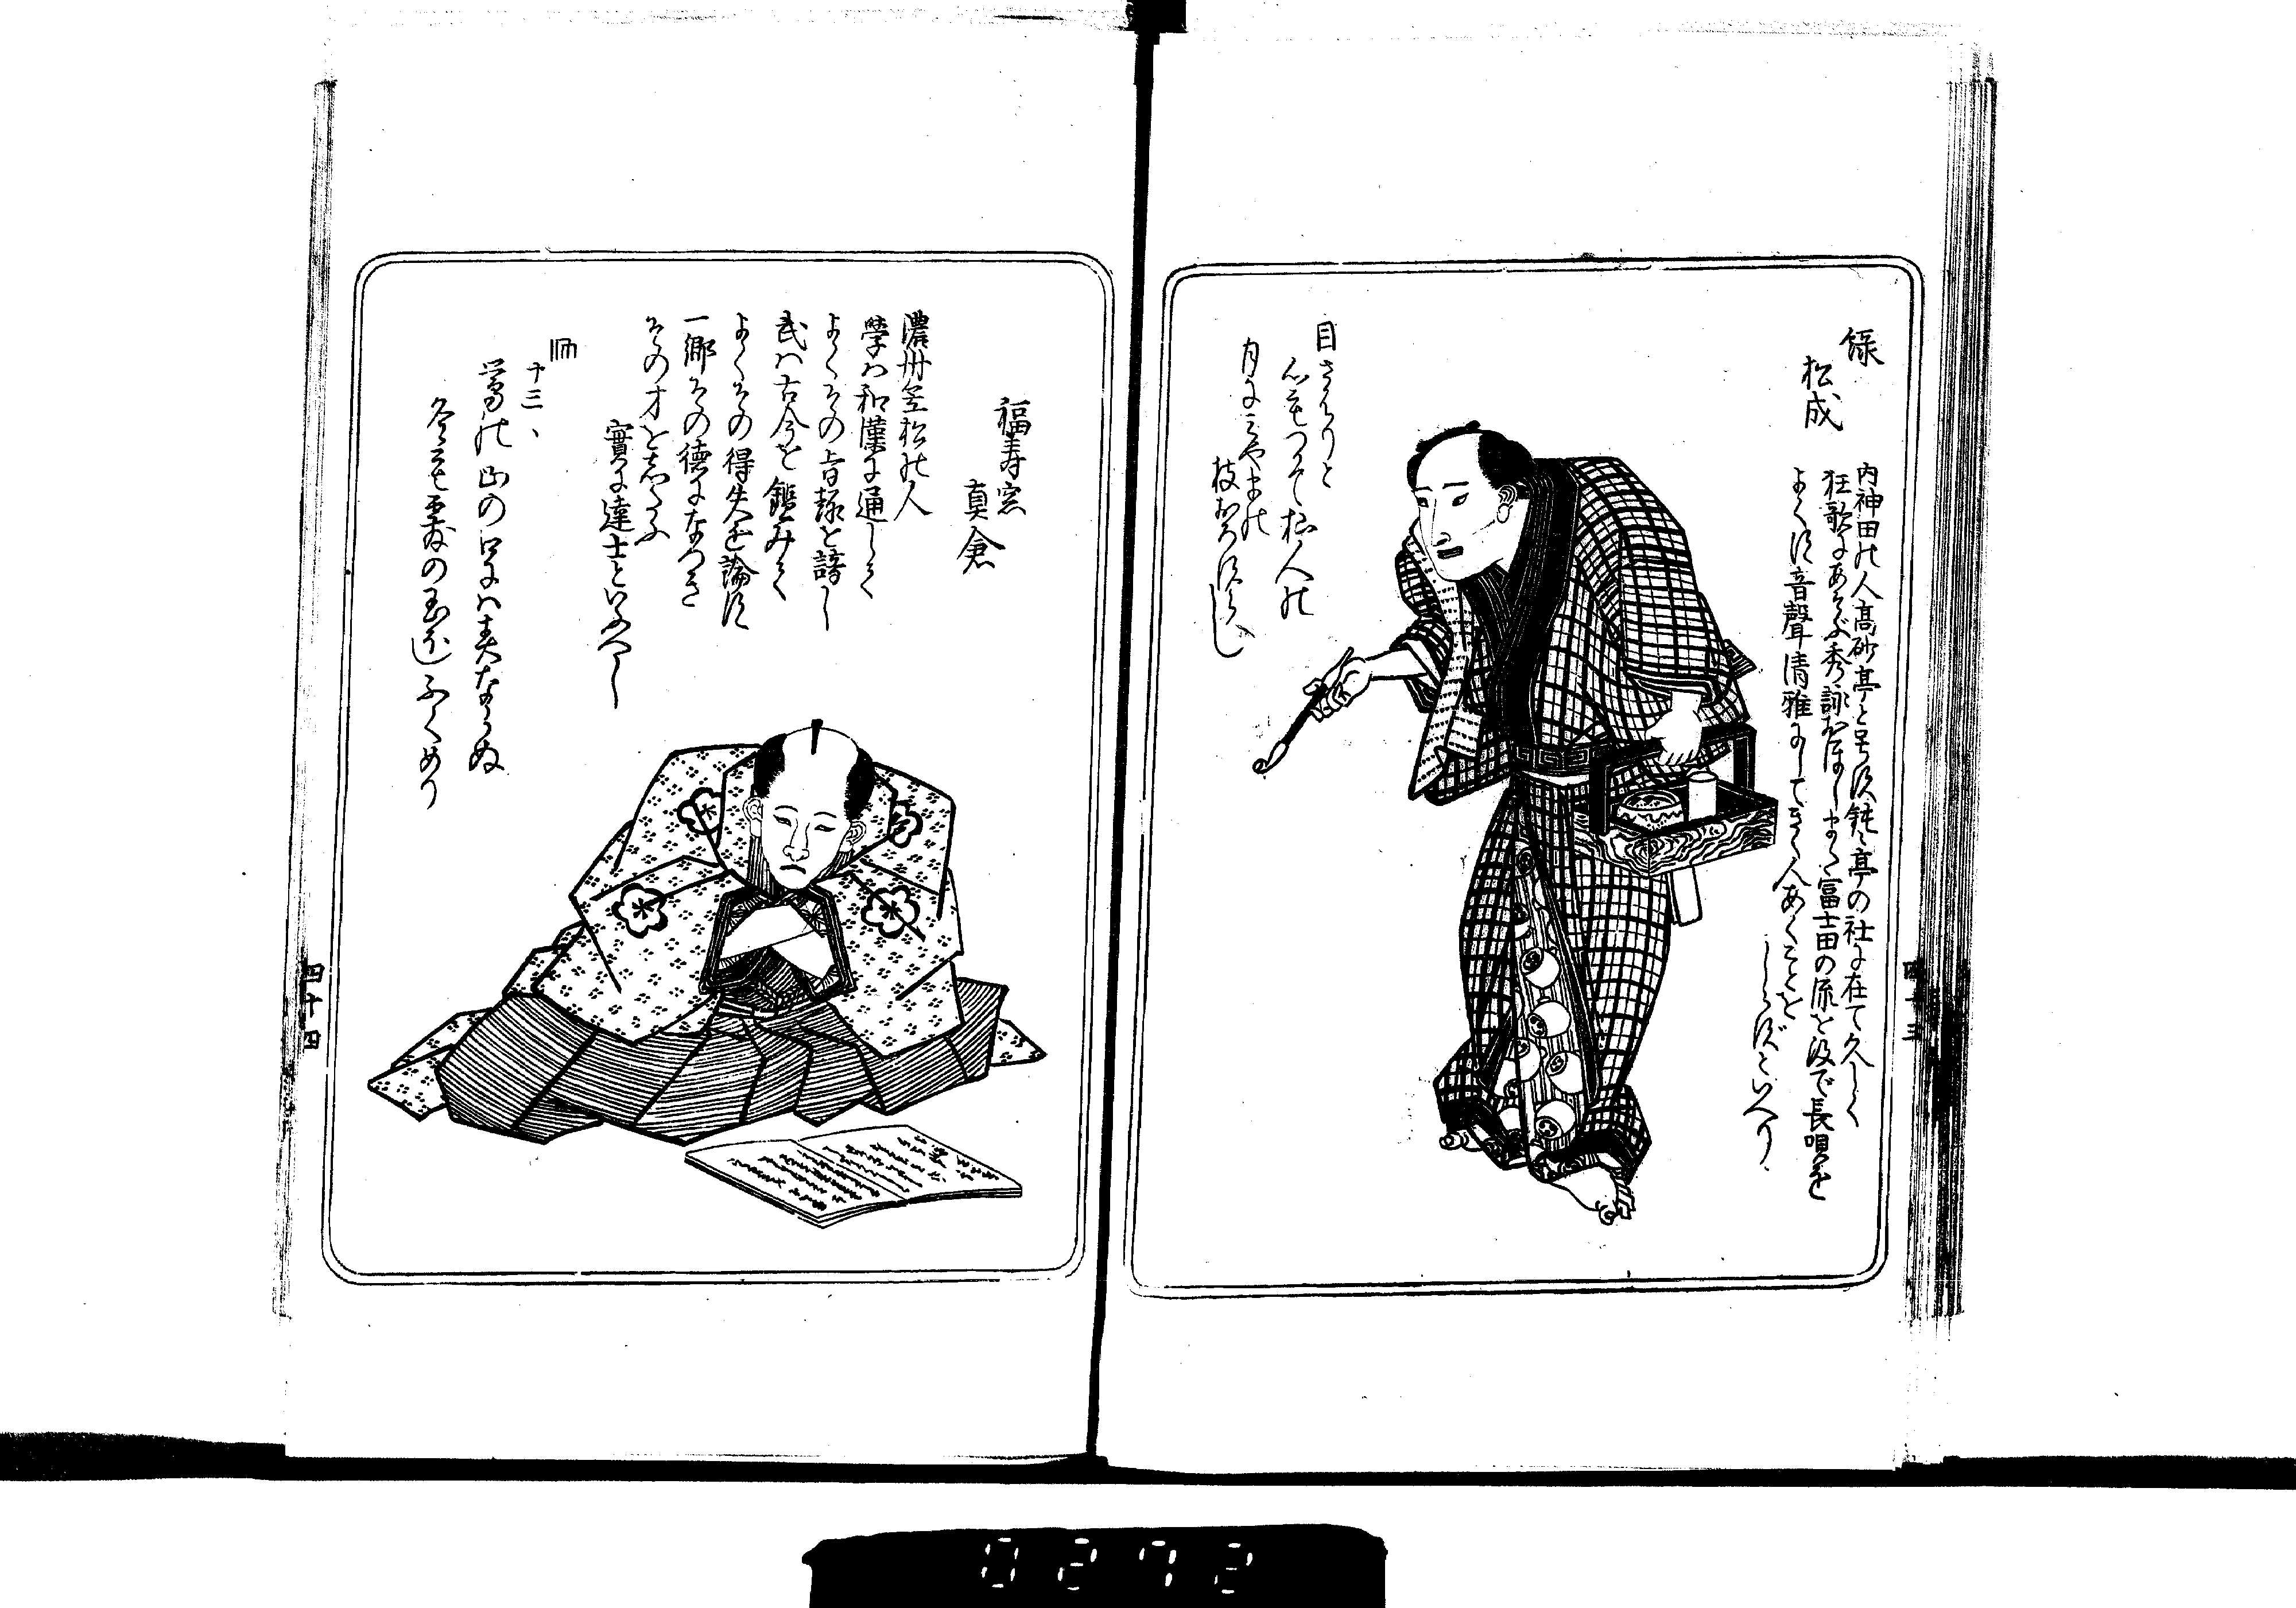 緑
松成
内神田の人高砂亭と号す鈍々亭の社に在て久しく
狂歌にあそぶ秀詠おほしまた富士田の流を汲で長唄を
よくす音聲清雅にしてきく人あくことを
しらずといへり
目さへりと
心もつかで杣人の
月にみやまの
枝おろすらし
四十三
福寿窓
真倉
濃州笠松の人
學は和漢に通じて
よくその旨趣を諳し
武は古今を鑑みて
よくその得失を論ず
一郷その徳になつき
その才をしたふ
實に達士といふべし
十三、
鶯の山の口には来なかぬ
冬を
四十四
0272